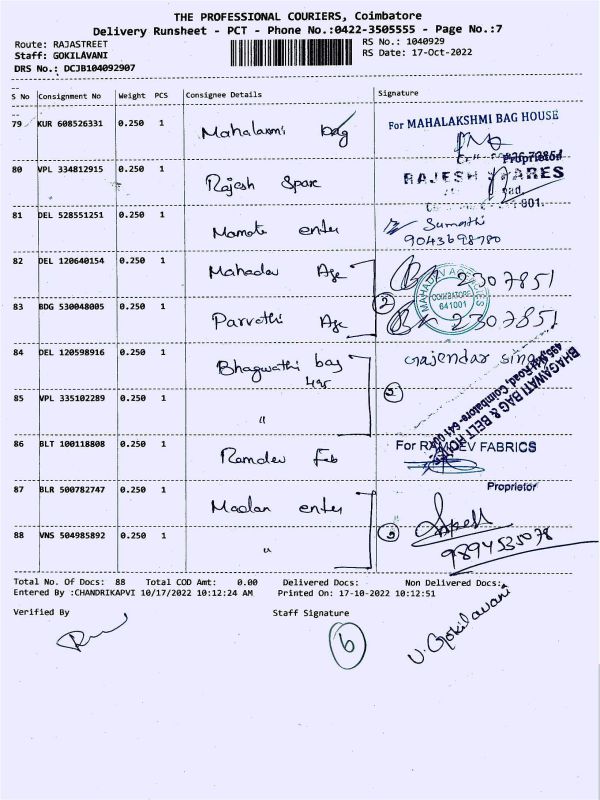 THE PROFESSIONAL COURIERS, Coimbatore
Delivery Runsheet - PCT - Phone No.:0422-3505555 - Page No.:7
Route: RAJASTREET
RS No.: 1040929
Staff: GOKILAVANI
RS Date: 17-Oct-2022
DRS No.: DCJB104092907
S No Consignment No Weight PCS Consignee Details Signature
79 KUR 608526331 0.250 1 Mahalaxmi bag For MAHALAKSHMI BAG HOUSE
Proprietor
80 VPL 334812915 0.250 1 Rajesh Spare RAJESH SPARES
81 DEL 528551251 0.250 1 Mamata enter Sumathi
9043698780
82 DEL 120640154 0.250 1 Mahadev Age 2307851
MAHADEV AGENCIES
COIMBATORE
641001
2
83 BDG 530048005 0.250 1 Parvathi Age 2307851
84 DEL 120598916 0.250 1 Bhagwathi bag Gajendar singh
495
BHAGAWATI BAG & BELT HOUSE
Road, Coimbatore- 641 001
85 VPL 335102289 0.250 1 "
86 BLT 100118808 0.250 1 Ramdev Fab For RAMDEV FABRICS
Proprietor
87 BLR 500782747 0.250 1 Madan enter
88 VNS 504985892 0.250 1 " 9894535078
Total No. Of Docs: 88 Total COD Amt: 0.00 Delivered Docs: Non Delivered Docs:
Entered By :CHANDRIKAPVI 10/17/2022 10:12:24 AM Printed On: 17-10-2022 10:12:51
Verified By Staff Signature
V. Gokilavani